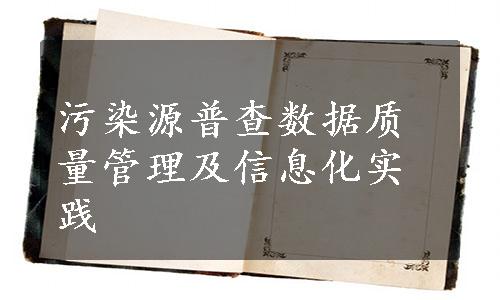 污染源普查数据质
量管理及信息化实
践